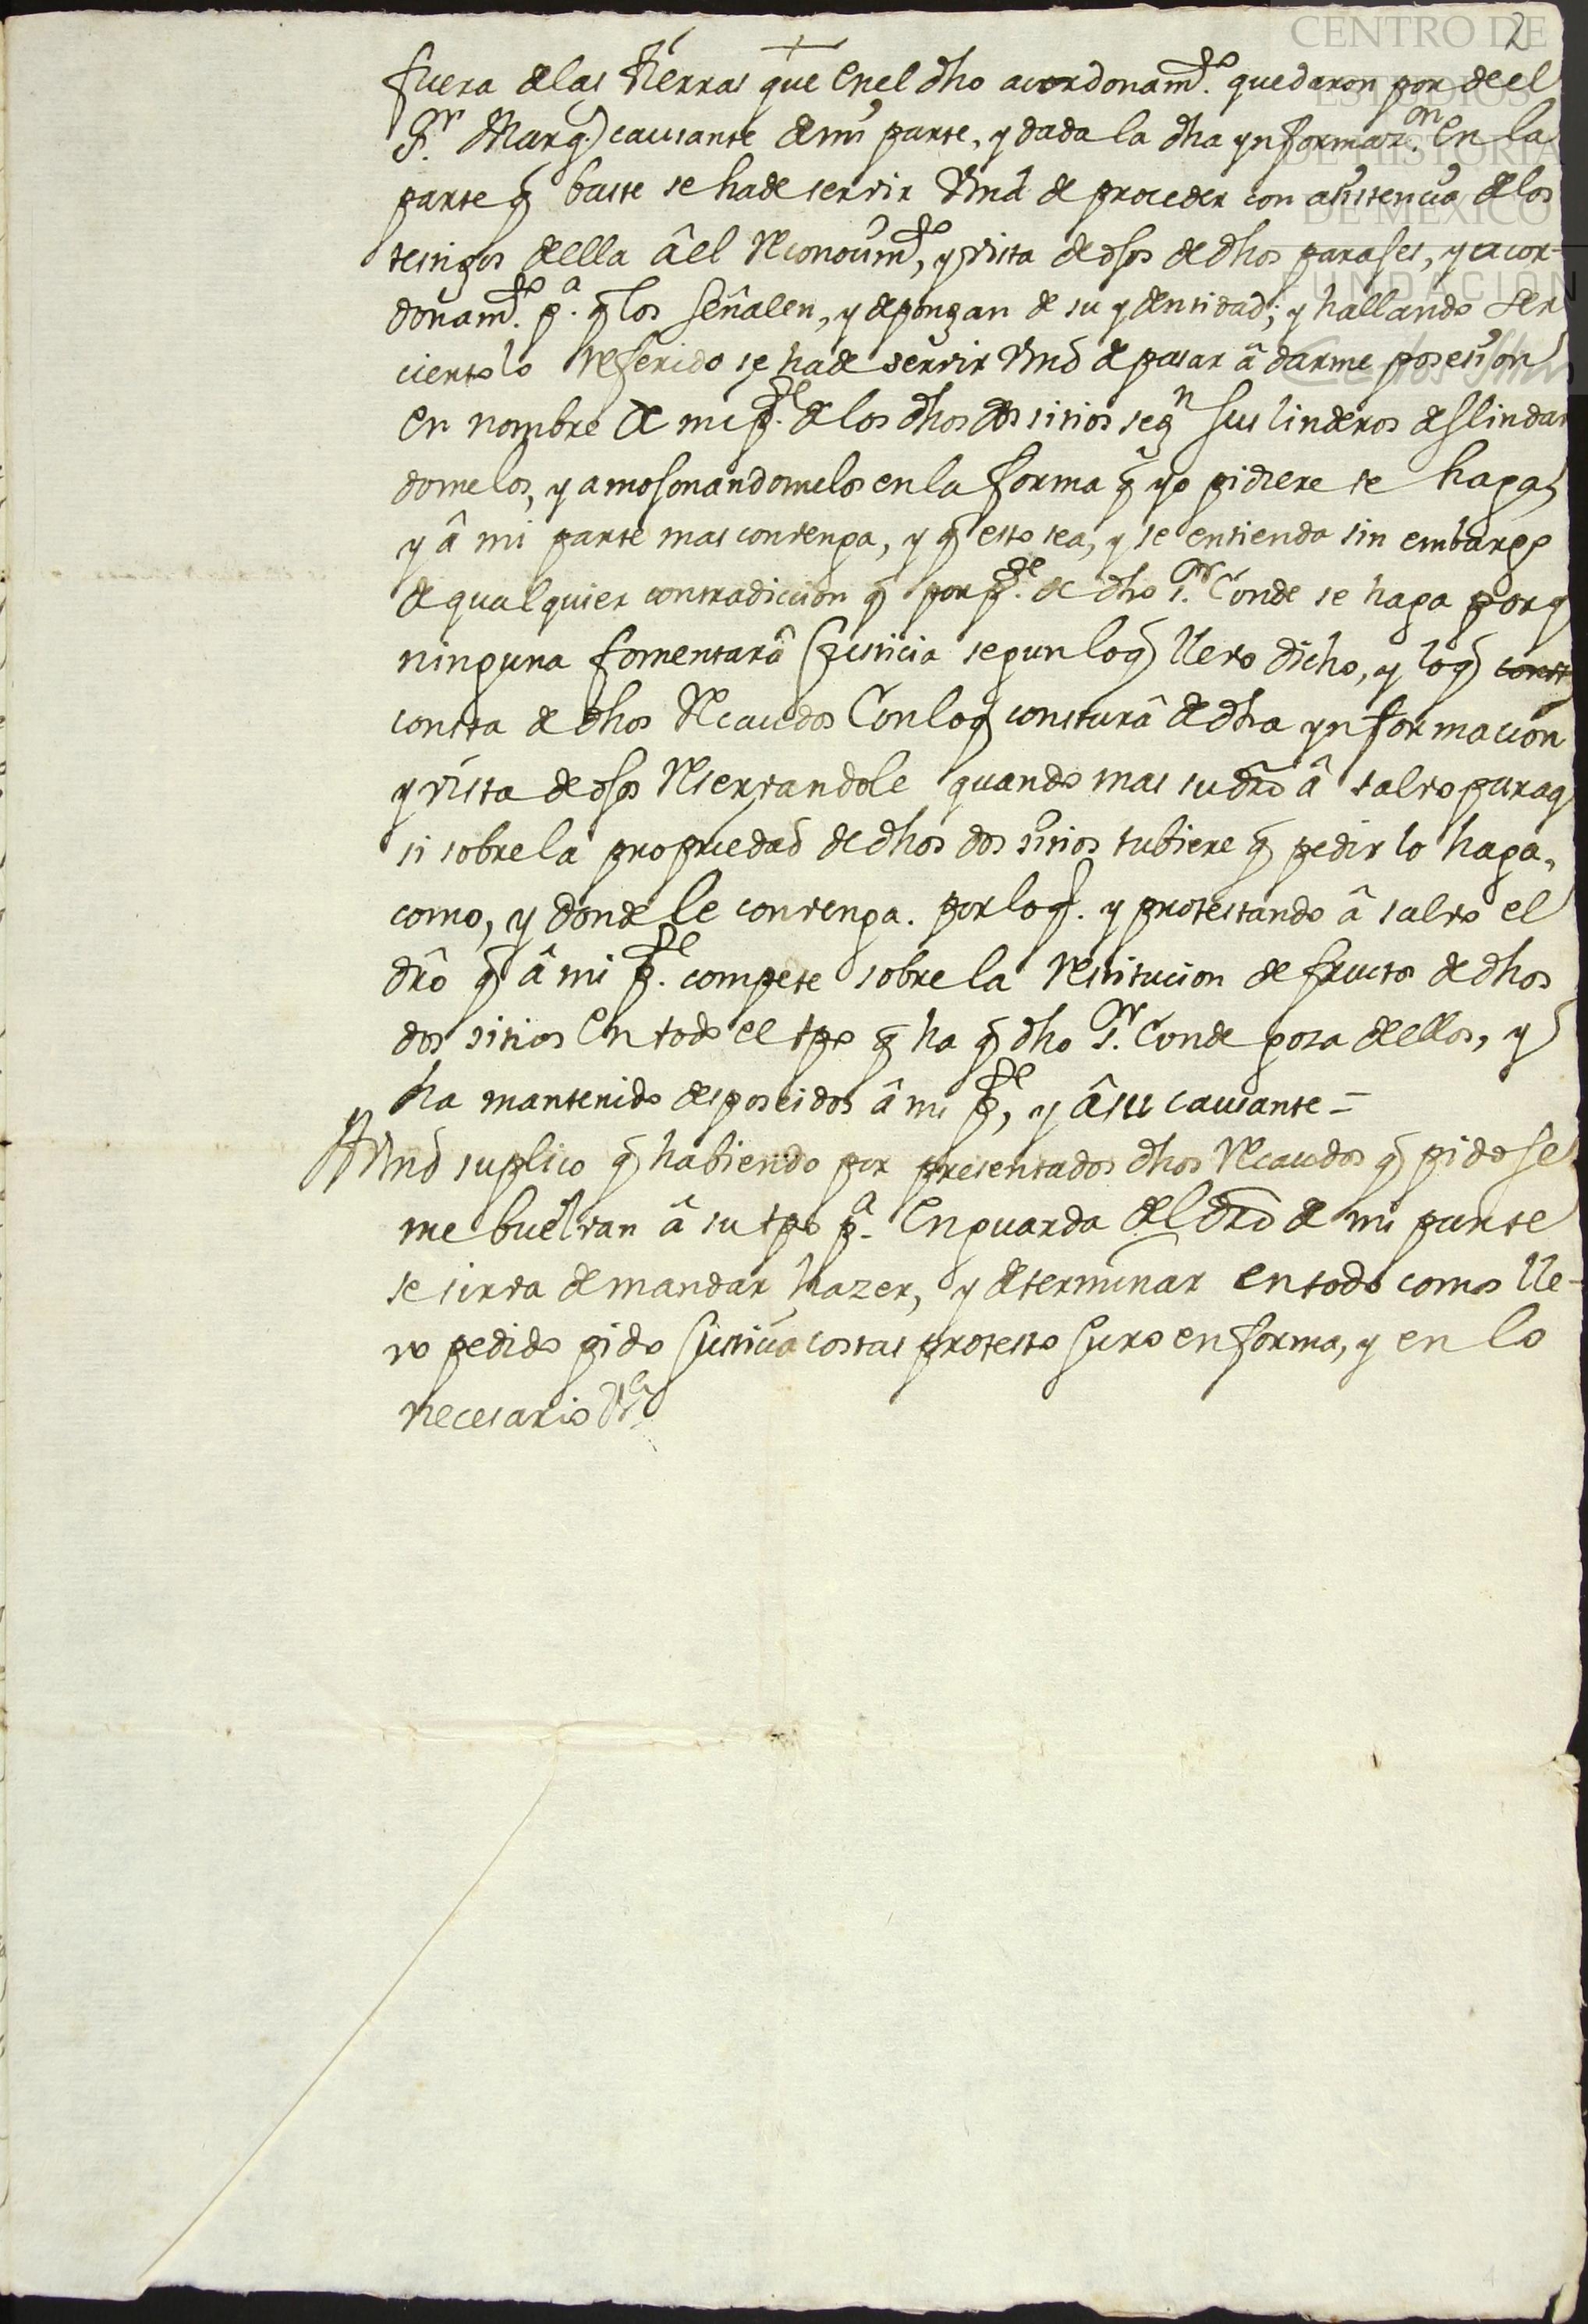 2
fuera de las tierras que en el dho acordonamto. quedaron por de el
Sr. Marqs causante de mi parte, y dada la dha ynformazon. en la
parte q baste se ha de servir Vmd de proceder con asistencia de los
testigos de ella â el reconocimto, y vista de ojos de dhos parajes, y acor-
donamto. pa. q los señalen, y depongan de su ydentidad; y hallando ser
cierto lo referido se ha de servir Vmd de pasar â darme posesion
en nombre de mi pte. de los dhos dos sitios segn sus linderos deslindan
domelos, y amojonandomelos en la forma q yo pidiere se haga,
y â mi parte mas convenga, y q esto sea, y se entienda sin embargo
de qualquier contradiccion q por pte. de dho Sr. Conde se haga porq
ninguna fomentarâ justicia segun loq llevo dicho, y loq const
consta de dhos recaudos con loq constarâ de dha ynformacion
y vista de ojos reservandole quando mas su dro â salvo paraq
si sobre la propriedad de dhos dos sitios tubiere q pedir lo haga,
como, y donde le convenga. por loq. y protestando â salvo el
drô q â mi pte. compete sobre la restitucion de fructos de dhos
dos sitios en todo el tpo q ha q dho Sr. Conde goza de ellos, y
ha mantenido desposeidos â mi pte, y â su causante =
A Vmd suplico q habiendo por presentados dhos recaudos q pido se
me buelvan â su tpo pa. en guarda de el dro de mi parte
se sirva de mandar hazer, y determinar en todo como lle-
vo pedido pido justicia costas protesto juro en forma, y en lo
necesario &a
CENTRO DE
ESTUDIOS
DE HISTORIA
DE MEXICO
FUNDACIÓN
Carlos Slim